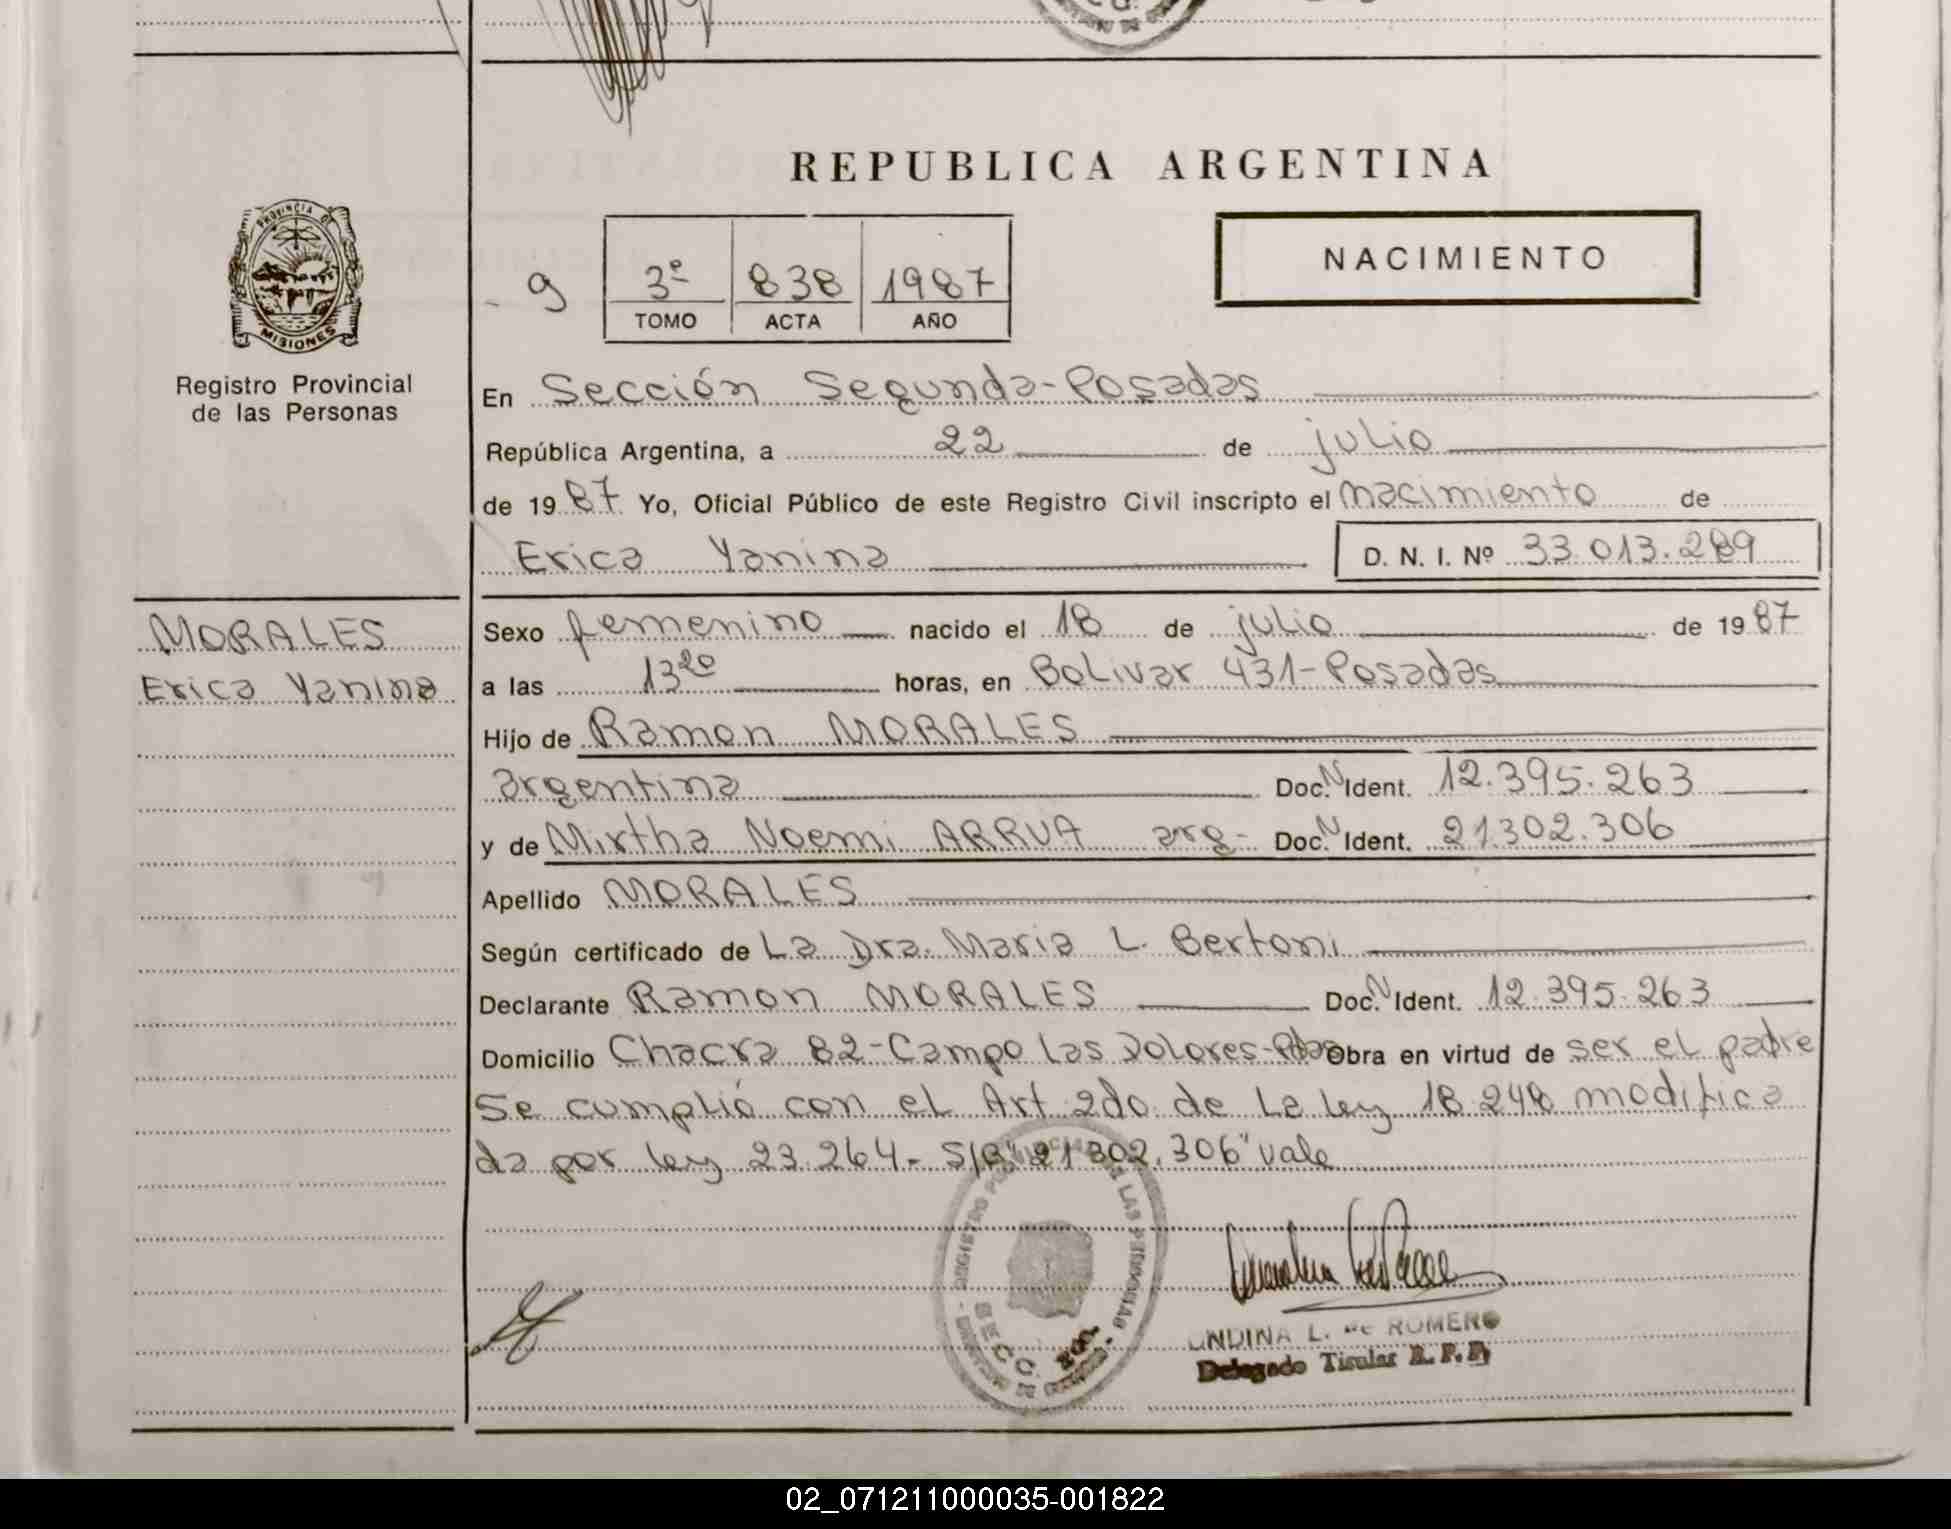 REPUBLICA ARGENTINA
PROVINCIA DE
MISIONES
Registro Provincial
de las Personas
9
3º 838 1987
TOMO ACTA AÑO
NACIMIENTO
En Sección Segunda-Posadas
República Argentina, a 22 de julio
de 1987 Yo, Oficial Público de este Registro Civil inscripto el nacimiento de
Erica Yanina D. N. I. Nº 33.013.289
MORALES
Erica Yanina
Sexo femenino nacido el 18 de julio de 1987
a las 13²⁰ horas, en Bolivar 431-Posadas
Hijo de Ramon MORALES
argentina Doc. N Ident. 12.395.263
y de Mirtha Noemi ARRUA arg- Doc. N Ident. 21.302.306
Apellido MORALES
Según certificado de La Dra. Maria L. Bertoni
Declarante Ramon MORALES Doc. N Ident. 12.395.263
Domicilio Chacra 82-Campo Las Dolores-Pdas Obra en virtud de ser el padre
Se cumplió con el Art 2do. de la ley 18.248 modifica
da por ley 23.264- S/R "21.302.306" vale
UNDINA L. DE ROMERO
Delegado Titular R. P. P.
02_071211000035-001822